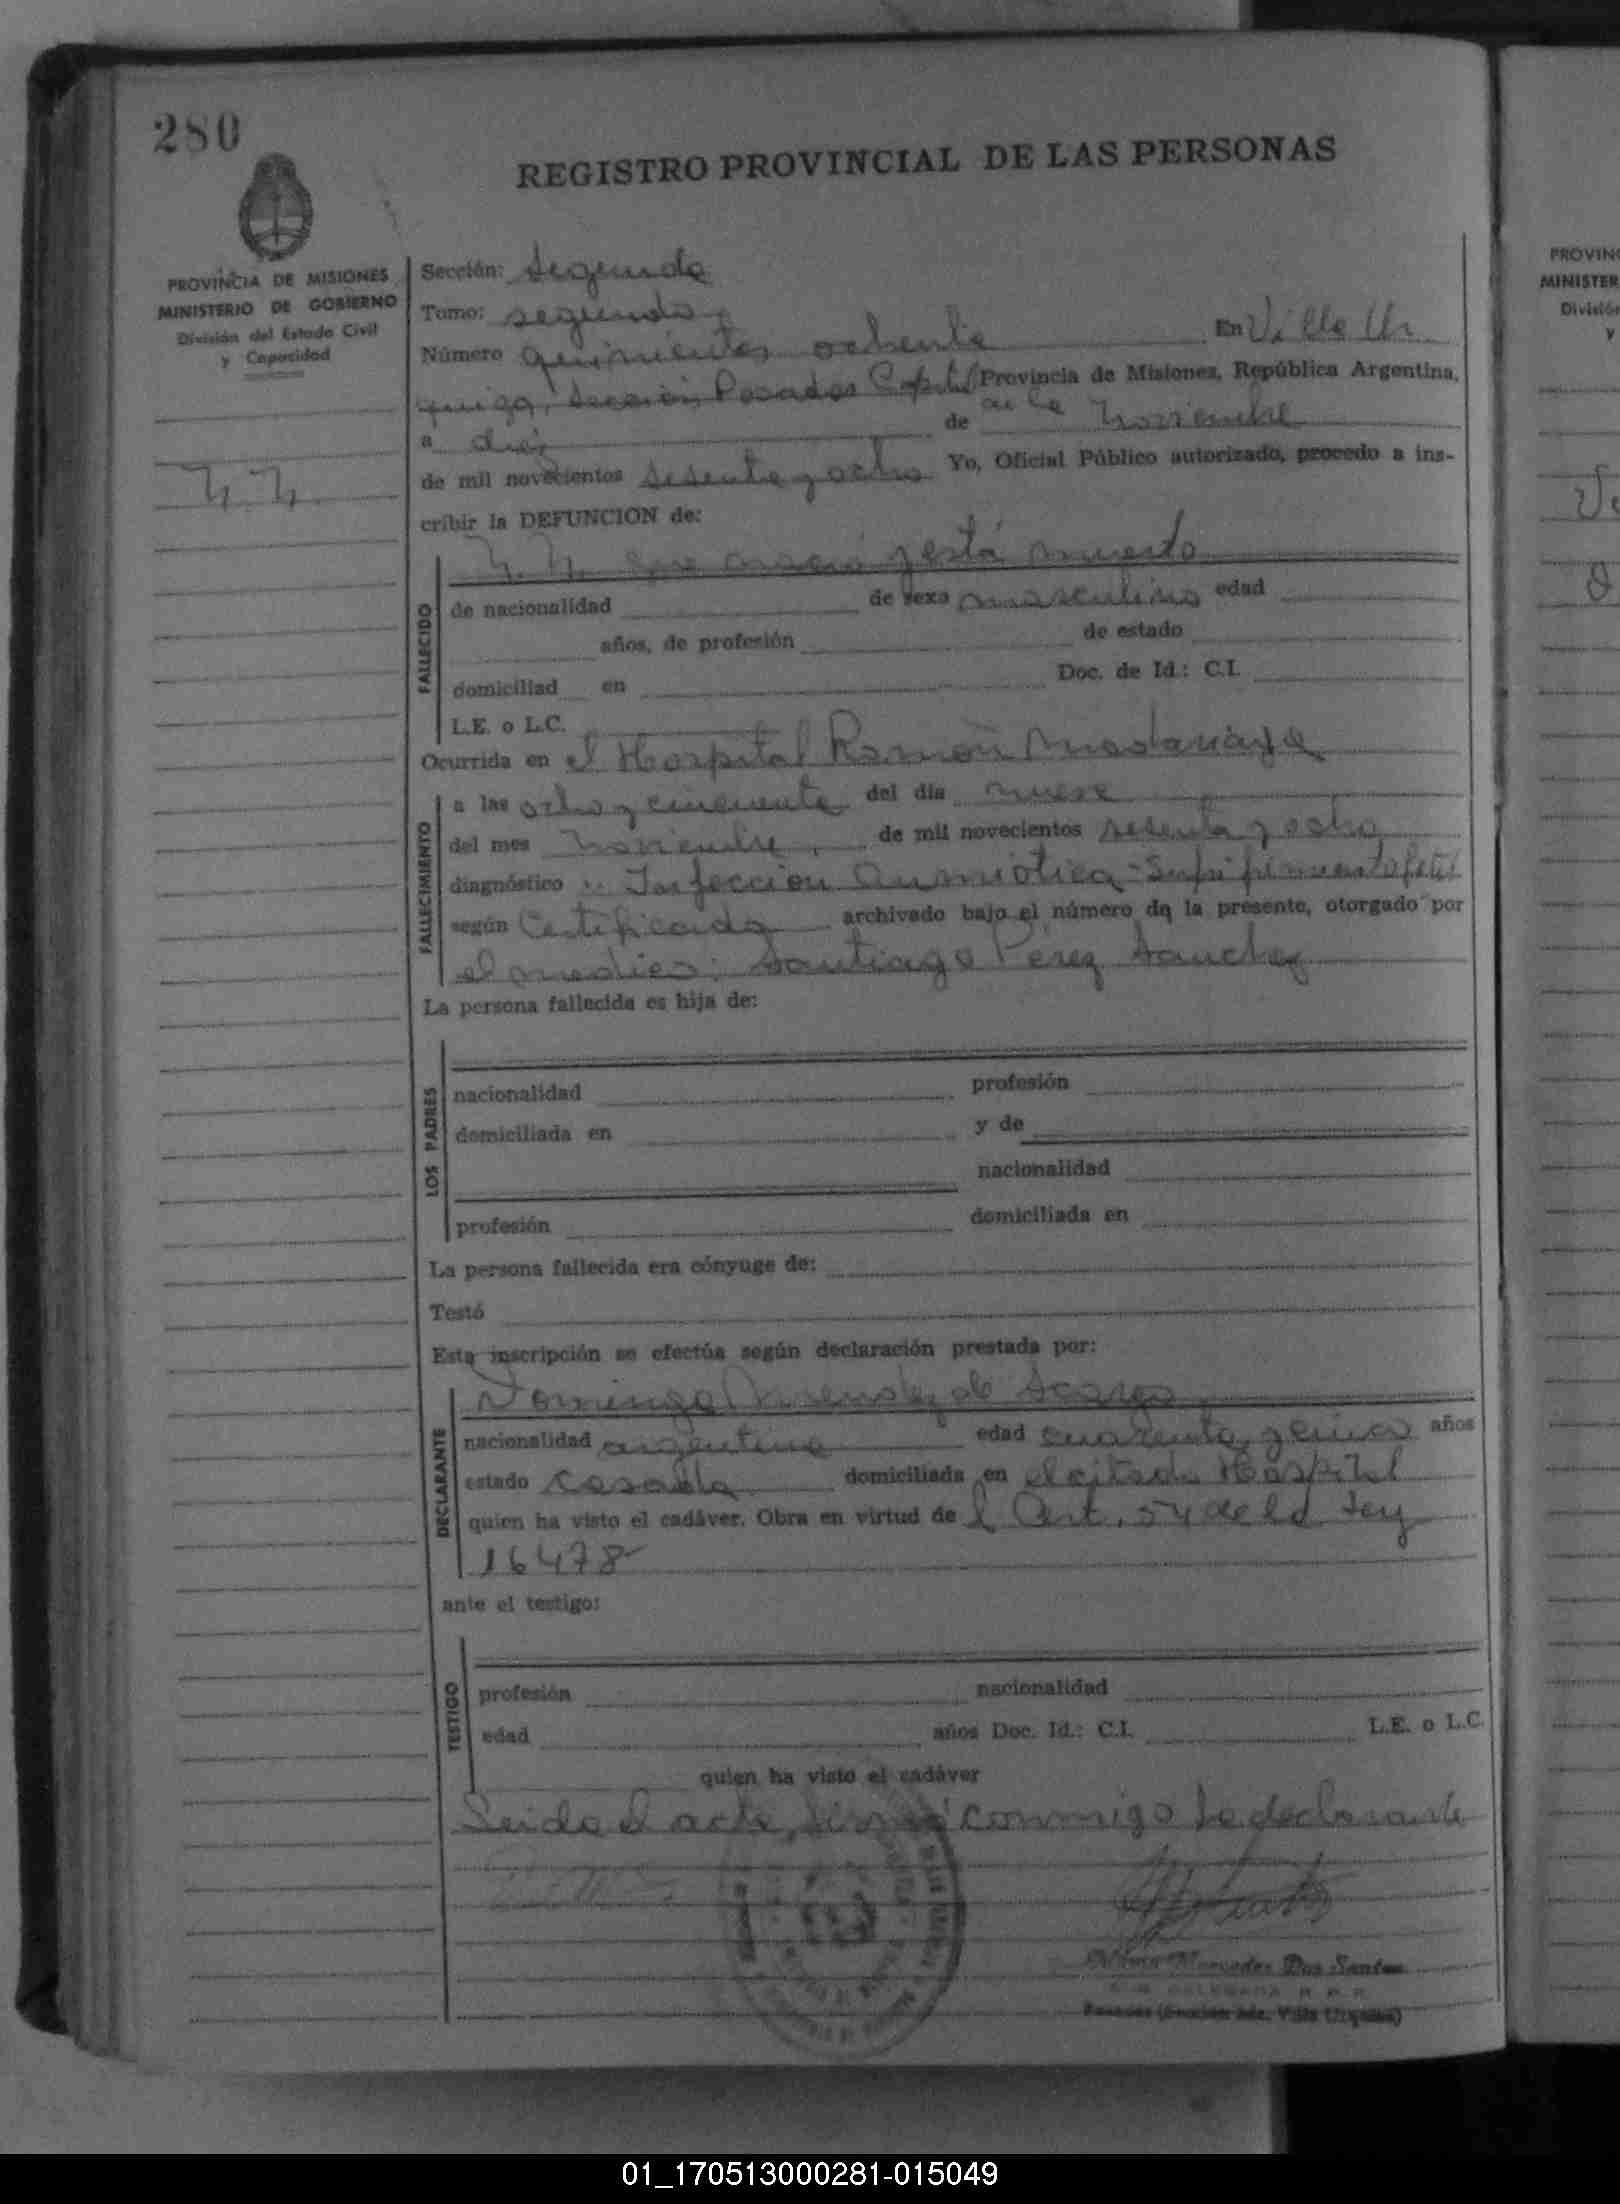 280
REGISTRO PROVINCIAL DE LAS PERSONAS
PROVINCIA DE MISIONES
MINISTERIO DE GOBIERNO
División del Estado Civil
y Capacidad
N. N.
Sección: Segunda
Tomo: segundo
Número quinientos ochenta En Villa Ur
quiza, Sección Posadas Capital Provincia de Misiones, República Argentina,
a diez de Noviembre
de mil novecientos sesenta y ocho Yo, Oficial Público autorizado, procedo a ins-
cribir la DEFUNCION de:
N. N. que nació y está muerto
FALLECIDO
de nacionalidad de sexo masculino edad
años, de profesión de estado
domiciliad en Doc. de Id.: C.I.
L.E. o L.C.
Ocurrida en el Hospital Ramón Madariaga
FALLECIMIENTO
a las ocho y cincuenta del día nueve
del mes Noviembre, de mil novecientos sesenta y ocho
diagnóstico : Infección Anmiótica - fetal
según Certificado archivado bajo el número de la presente, otorgado por
el medico: Santiago Pérez Sanchez
La persona fallecida es hija de:
LOS PADRES
nacionalidad profesión
domiciliada en y de
nacionalidad
profesión domiciliada en
La persona fallecida era cónyuge de:
Testó
Esta inscripción se efectúa según declaración prestada por:
DECLARANTE
Dominga Mendez de
nacionalidad argentina edad cuarenta y cinco años
estado casada domiciliada en el citado Hospital
quien ha visto el cadáver. Obra en virtud de l Art. 54 de la Ley
16478
ante el testigo:
TESTIGO
profesión nacionalidad
edad años Doc. Id.: C.I. L.E. o L.C.
quien ha visto el cadáver
Leida el acta, firmó conmigo la declarante
Mercedes Dos Santos
DELEGADA R. P. P.
Posadas (Sección 2da. Villa Urquiza)
PROVIN
MINISTER
División
y
01_170513000281-015049